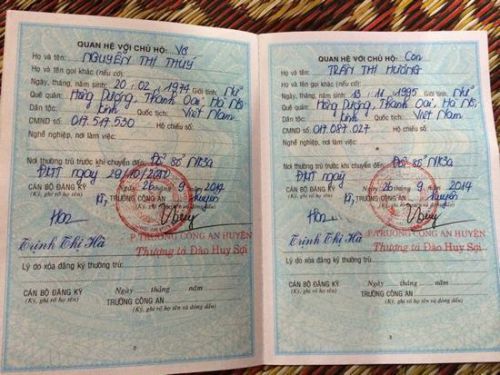 QUAN HỆ VỚI CHỦ HỘ: Vợ
Họ và tên: NGUYỄN THỊ THUÝ
Họ và tên gọi khác (nếu có):
Ngày, tháng, năm sinh: 20 - 02 - 1974 Giới tính: Nữ
Quê quán: Hồng Dương, Thanh Oai, Hà Nội
Dân tộc: Kinh Quốc tịch: Việt Nam
CMND số: 017.517.530 Hộ chiếu số:
Nghề nghiệp, nơi làm việc:
Nơi thường trú trước khi chuyển đến: Đổi sổ NK3a
ĐKTT ngày 29/10/
Ngày 26 tháng 9 năm 2014
CÁN BỘ ĐĂNG KÝ TRƯỞNG CÔNG AN
(Ký, ghi rõ họ tên)
P.TRƯỞNG CÔNG AN HUYỆN
Trịnh Thị Hà Thượng tá Đào Huy Sợi
Lý do xóa đăng ký thường trú:
Ngày tháng năm
CÁN BỘ ĐĂNG KÝ TRƯỞNG CÔNG AN
(Ký, ghi rõ họ tên) (Ký, ghi rõ họ tên và đóng dấu)
QUAN HỆ VỚI CHỦ HỘ: Con
Họ và tên: TRẦN THỊ HƯƠNG
Họ và tên gọi khác (nếu có):
Ngày, tháng, năm sinh: 11 - 1995 Giới tính: Nữ
Quê quán: Hồng Dương, Thanh Oai, Hà Nội
Dân tộc: Kinh Quốc tịch: Việt Nam
CMND số: 017.087.027 Hộ chiếu số:
Nghề nghiệp, nơi làm việc:
Nơi thường trú trước khi chuyển đến: Đổi sổ NK3a
ĐKTT ngày
Ngày 26 tháng 9 năm 2014
CÁN BỘ ĐĂNG KÝ TRƯỞNG CÔNG AN huyện
(Ký, ghi rõ họ tên)
P.TRƯỞNG CÔNG AN HUYỆN
Trịnh Thị Hà Thượng tá Đào Huy Sợi
Lý do xóa đăng ký thường trú:
Ngày tháng năm
CÁN BỘ ĐĂNG KÝ TRƯỞNG CÔNG AN
(Ký, ghi rõ họ tên) (Ký, ghi rõ họ tên và đóng dấu)